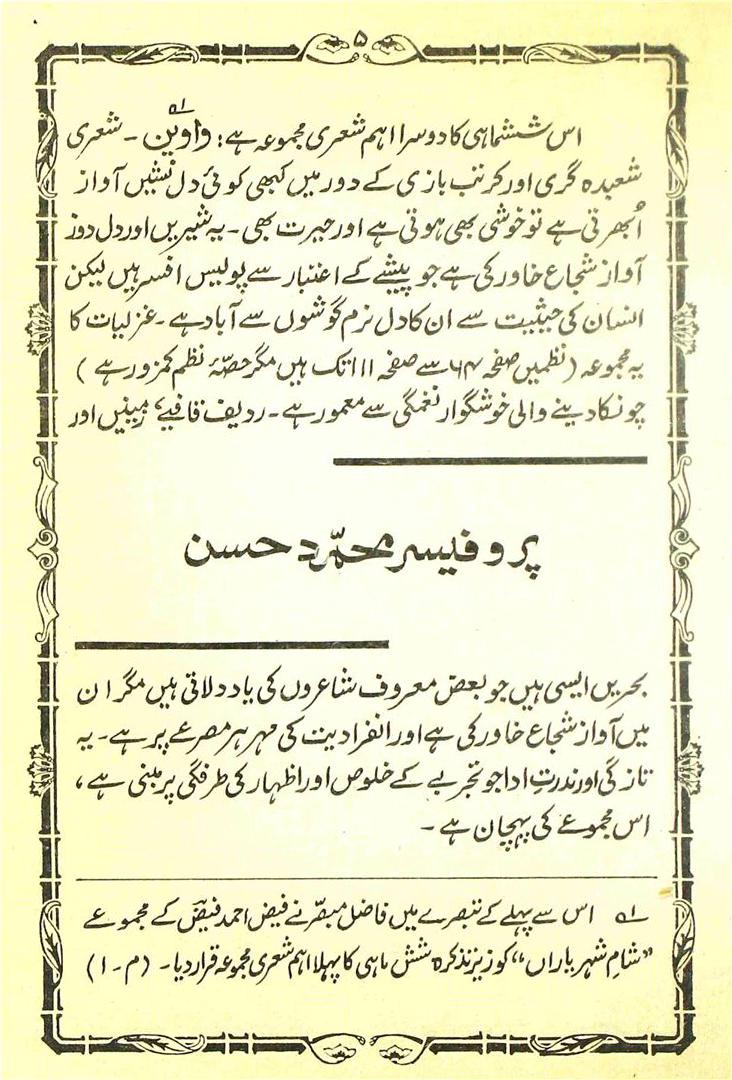 ۵
اس ششماہی کا دوسرا اہم شعری مجموعہ ہے: واوین ۱ہ ۔ شعری
شعبدہ گری اور کرتب بازی کے دور میں کبھی کوئی دل نشیں آواز
اُبھرتی ہے تو خوشی بھی ہوتی ہے اور حیرت بھی ۔ یہ شیریں اور دل دوز
آواز شجاع خاور کی ہے جو پیشے کے اعتبار سے پولیس افسر ہیں لیکن
انسان کی حیثیت سے ان کا دل نرم گوشوں سے آباد ہے ۔ غزلیات کا
یہ مجموعہ (نظمیں صفحہ ۶۴ سے صفحہ ۱۱۱ تک ہیں مگر حصۂ نظم کمزور ہے)
چونکا دینے والی خوشگوار نغمگی سے معمور ہے ۔ ردیف قافیے، زمینیں اور
پروفیسر محمّد حسن
بحریں ایسی ہیں جو بعض معروف شاعروں کی یاد دلاتی ہیں مگر ان
میں آواز شجاع خاور کی ہے اور انفرادیت کی مہر ہر مصرعے پر ہے ۔ یہ
تازگی اور ندرتِ ادا جو تجربے کے خلوص اور اظہار کی طرفگی پر مبنی ہے،
اس مجموعے کی پہچان ہے ۔
۱ہ اس سے پہلے کے تبصرے میں فاضل مبصّر نے فیض احمد فیضؔ کے مجموعے
”شامِ شہر یاراں“ کو زیر تذکرہ شش ماہی کا پہلا اہم شعری مجموعہ قرار دیا ۔ (م ۔ ا)